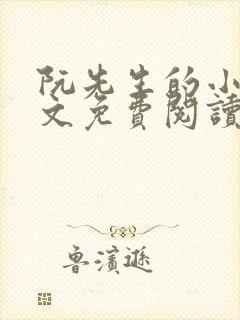 阮先生的小
文免費閱讀
魯濱遜